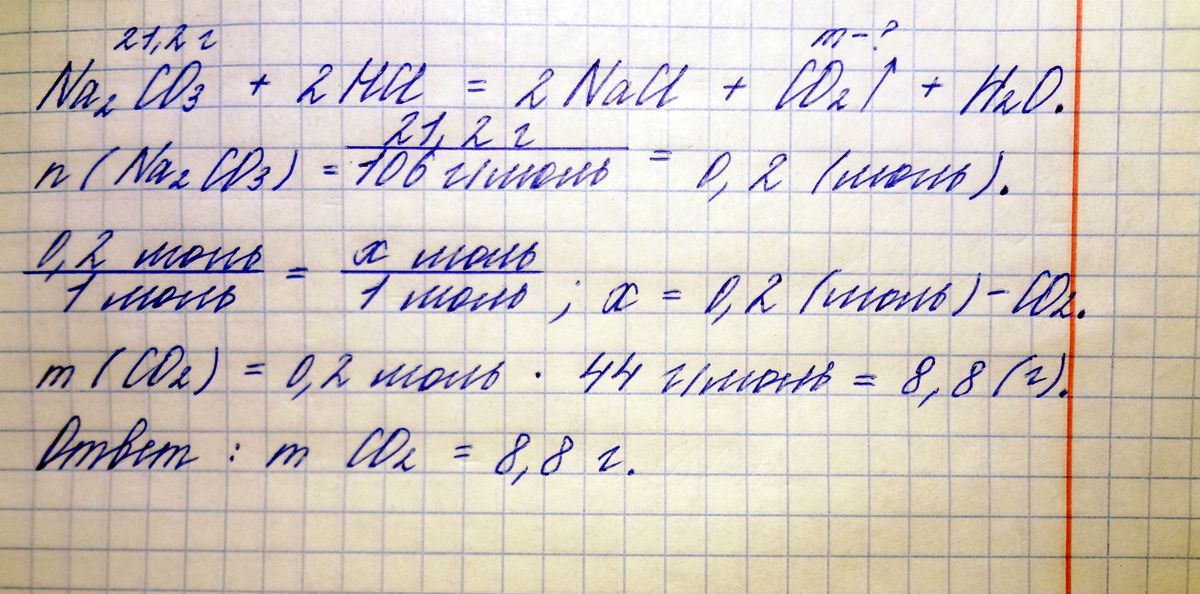 21,2 г m-?
Na₂CO₃ + 2HCl = 2NaCl + CO₂↑ + H₂O.
n(Na₂CO₃) = 21,2 г / 106 г/моль = 0,2 (моль).
0,2 моль / 1 моль = x моль / 1 моль ; x = 0,2 (моль) - CO₂.
m(CO₂) = 0,2 моль · 44 г/моль = 8,8 (г).
Ответ : m CO₂ = 8,8 г.